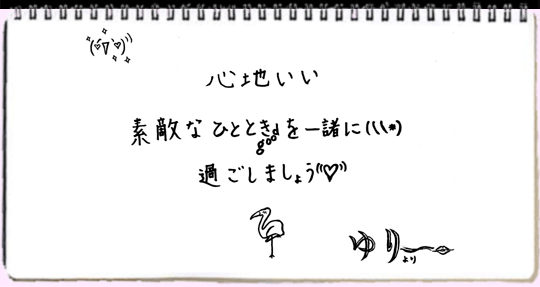 心地いい
素敵なひとときを一諸に(((*)
good
過ごしましょう((♡))
ゆりー
より